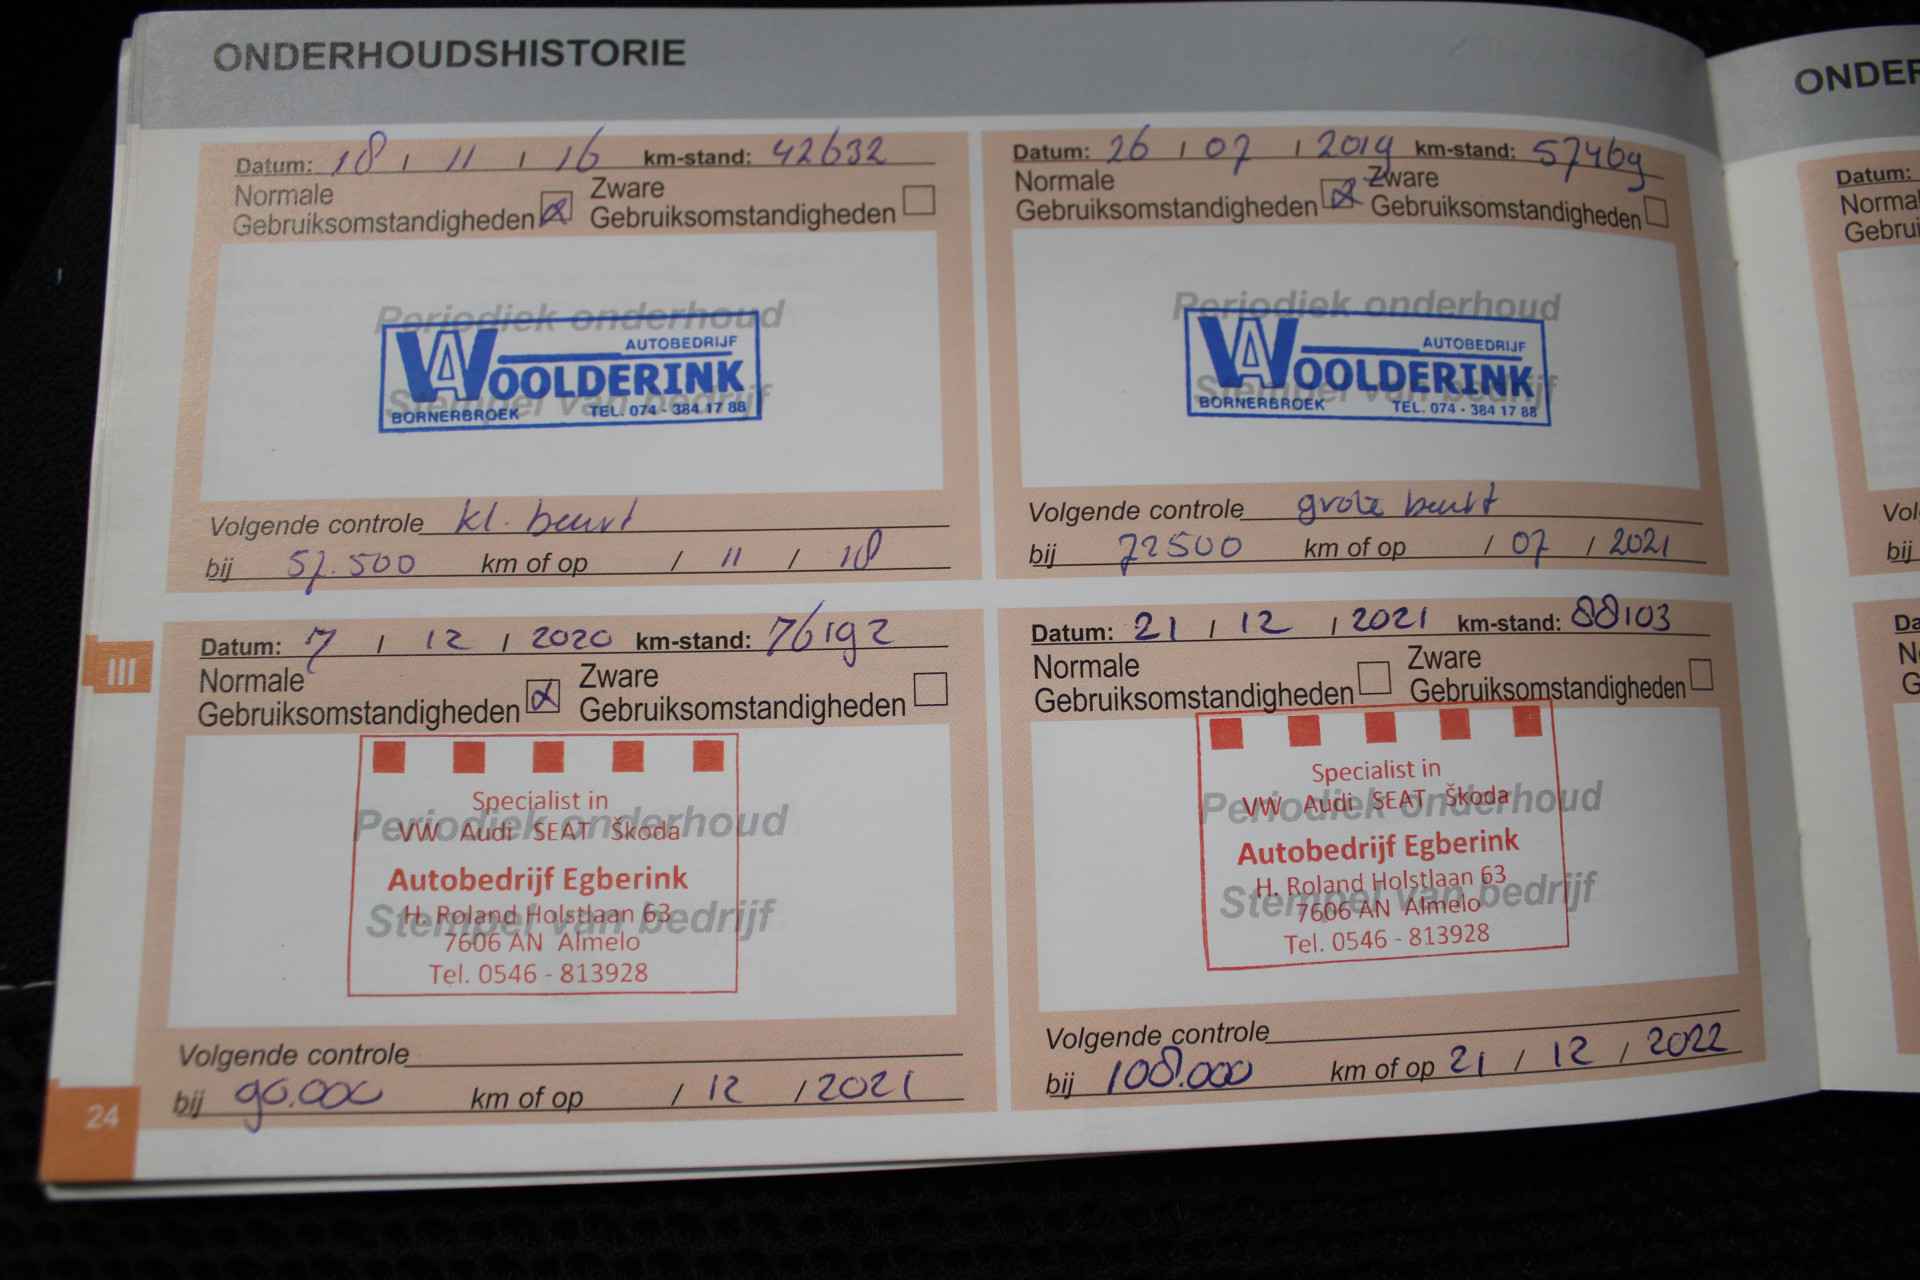 ONDERHOUDSHISTORIE
Datum: 18 / 11 / 16 km-stand: 42632
Normale Gebruiksomstandigheden
Zware Gebruiksomstandigheden
Periodiek onderhoud
Stempel van bedrijf
AUTOBEDRIJF
WOOLDERINK
BORNERBROEK TEL. 074 - 384 17 88
Volgende controle kl. beurt
bij 57.500 km of op / 11 / 18
Datum: 26 / 07 / 2019 km-stand: 57469
Normale Gebruiksomstandigheden
Zware Gebruiksomstandigheden
Periodiek onderhoud
Stempel van bedrijf
AUTOBEDRIJF
WOOLDERINK
BORNERBROEK TEL. 074 - 384 17 88
Volgende controle grote beurt
bij 72500 km of op / 07 / 2021
Datum: 7 / 12 / 2020 km-stand: 76192
Normale Gebruiksomstandigheden
Zware Gebruiksomstandigheden
Periodiek onderhoud
Stempel van bedrijf
Specialist in
VW Audi SEAT Škoda
Autobedrijf Egberink
H. Roland Holstlaan 63
7606 AN Almelo
Tel. 0546 - 813928
Volgende controle
bij 90.000 km of op / 12 / 2021
Datum: 21 / 12 / 2021 km-stand: 88103
Normale Gebruiksomstandigheden
Zware Gebruiksomstandigheden
Periodiek onderhoud
Stempel van bedrijf
Specialist in
VW Audi SEAT Škoda
Autobedrijf Egberink
H. Roland Holstlaan 63
7606 AN Almelo
Tel. 0546 - 813928
Volgende controle
bij 108.000 km of op 21 / 12 / 2022
III
24
ONDER
Datum:
Norma
Gebrui
Vol
bij
Da
N
G